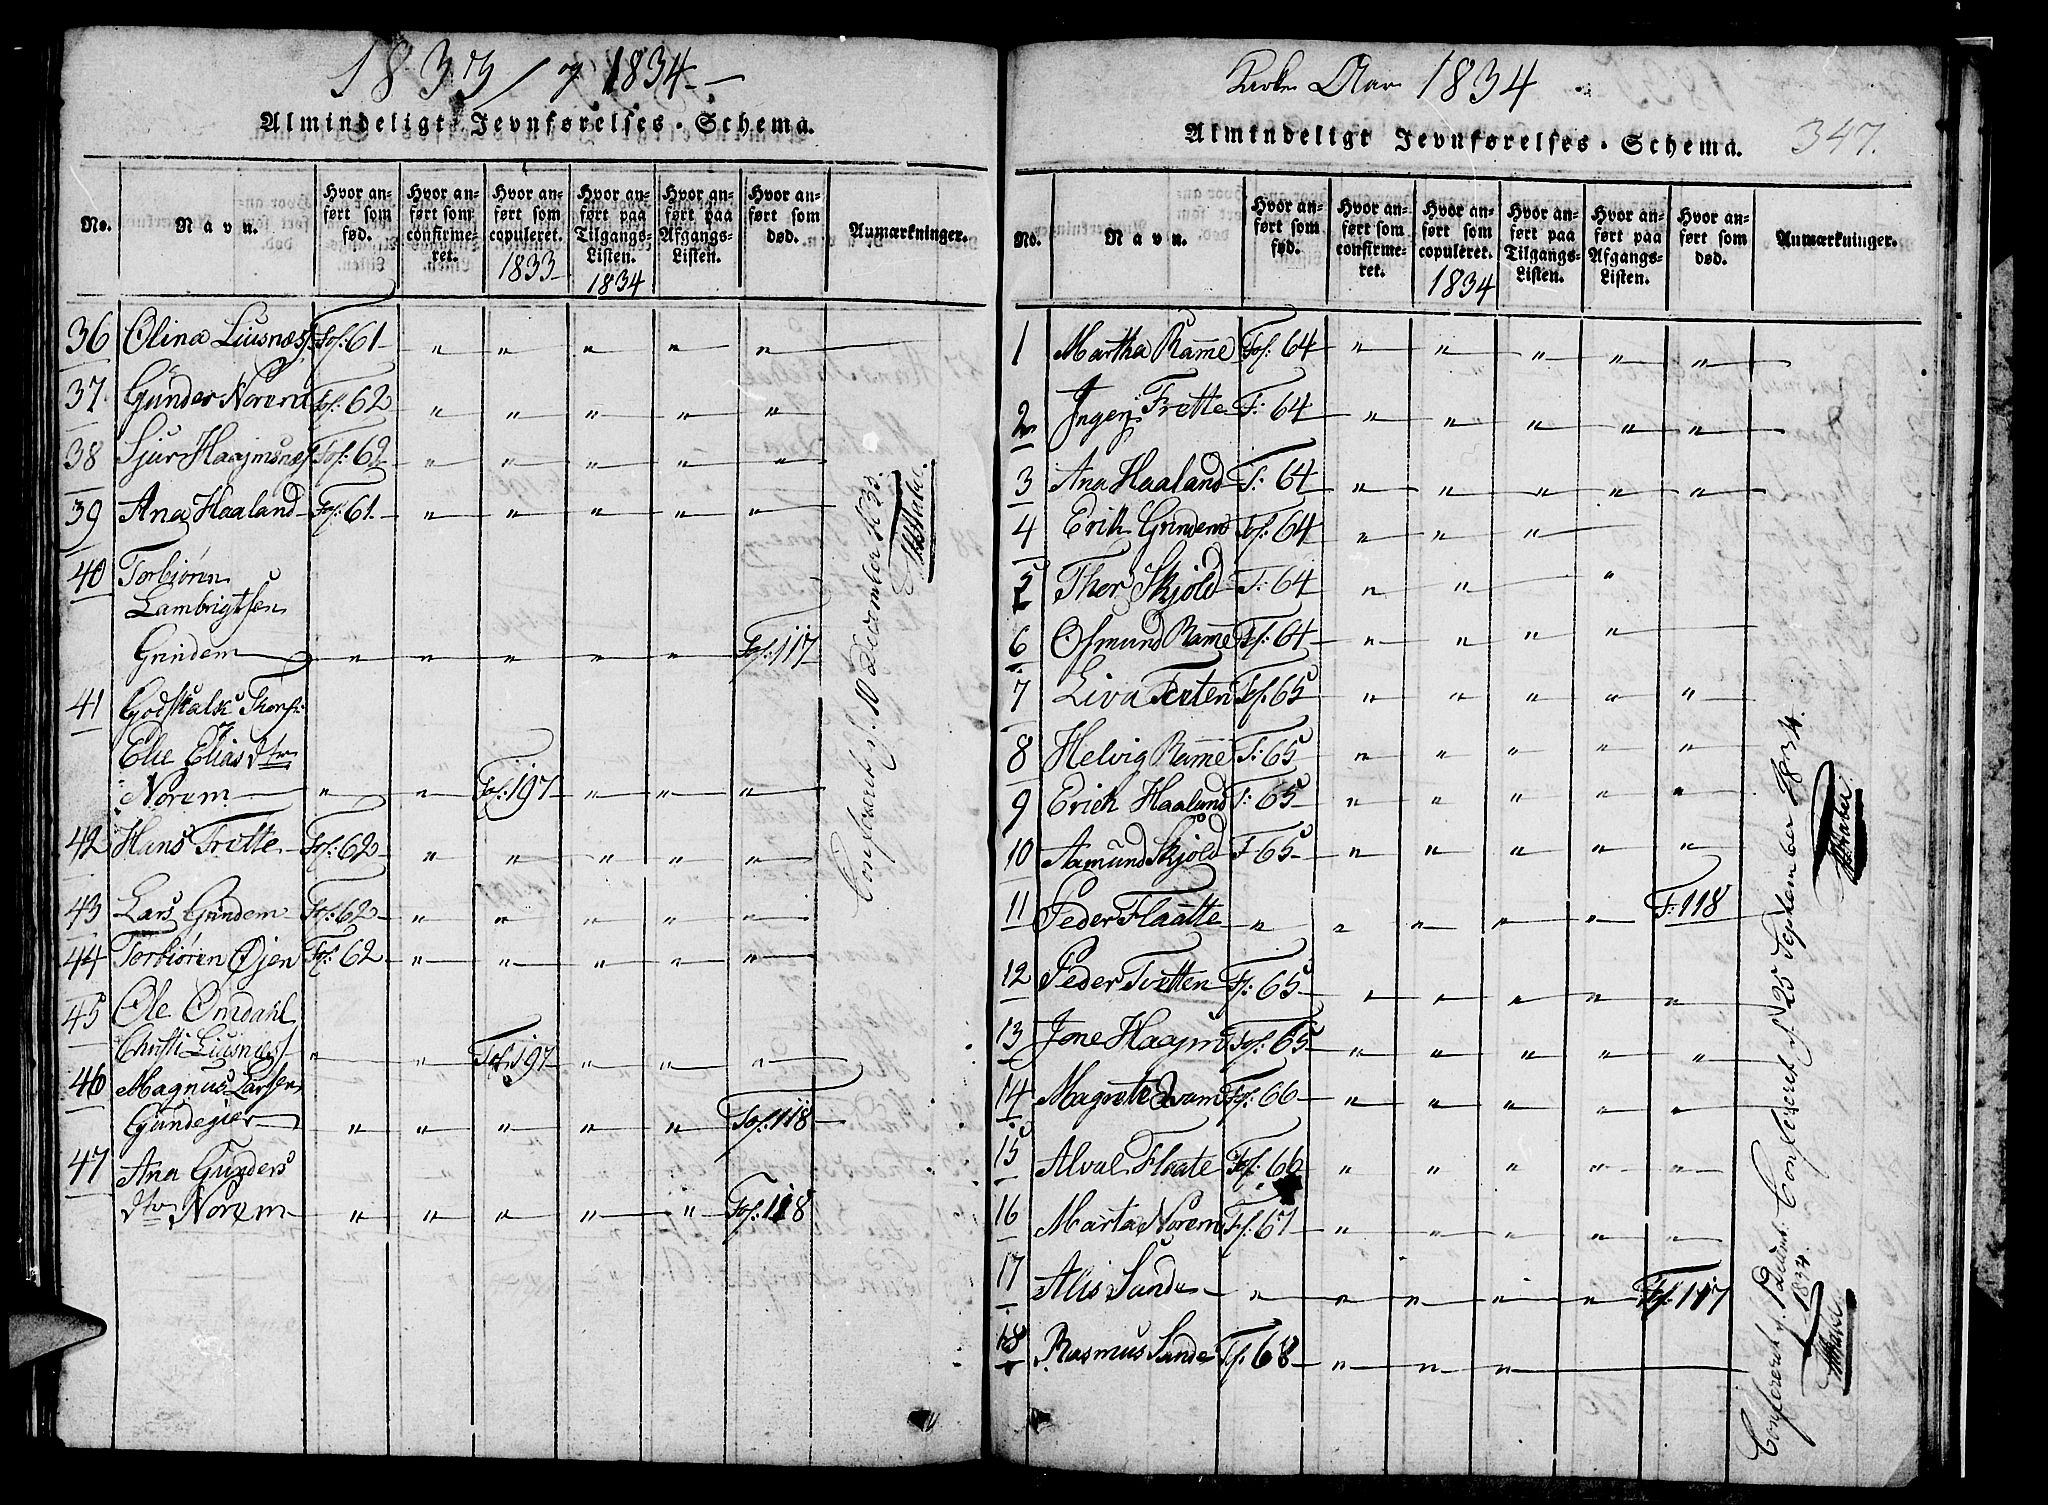 1833 / og 1834 -
Almindeligt Jevnførelses-Schema.
No.
Navn.
Hvor anført som fød.
Hvor anført som confirmeret.
Hvor anført som copuleret.
1833
Hvor anført paa Tilgangs-Listen.
1834
Hvor anført paa Afgangs-Listen.
Hvor anført som død.
Anmærkninger.
36 Olina Liusnæs Fol: 61 " " " " "
37 Gunder Norem Fol: 62 " " " " "
38 Sjur Haajmsnæs Fol: 62 " " " " "
39 Ana Haaland Fol: 61 " " " " "
40 Torbiören
Lambrigtsen
Grindem " " " " " Fol: 117
41 Godskalk Thors:
Elie Elias dtr
Norem " " Fol: 197 " " "
42 Hans Trette Fol: 62 " " " " "
43 Lars Grindem Fol: 62 " " " " "
44 Torbiören Øjen Fol: 62 " " " " "
45 Ole Omdahl
Christi Liusnæs " " Fol: 197 " " "
46 Magnus Larsen
Gundegier " " " " " Fol: 118
47 Ana Gunders
dtr Norem " " " " " Fol: 118
Confereret d. 10 December 1833.
Kirke Aar 1834
347.
Almindeligt Jevnførelses-Schema.
No.
Navn.
Hvor anført som fød.
Hvor anført som confirmeret.
Hvor anført som copuleret.
1834
Hvor anført paa Tilgangs-Listen.
Hvor anført paa Afgangs-Listen.
Hvor anført som død.
Anmærkninger.
1 Martha Rame Fol: 64 " " " " "
2 Frette F: 64 " " " " "
3 Ana Haaland F: 64 " " " " "
4 Erik Grindem Fol: 64 " " "
5 Thor Skjöld F: 64 " " "
6 Osmund Rame Fol: 64 " " " "
7 Liva Tveten Fol: 65 " " " " "
8 Helvig Rame F: 65 " " " " "
9 Erich Haaland F: 65 " " " " "
10 Aamund Skjöld F 65 " " " " "
11 Peder Flaatte " " " " " F: 118
12 Peder Tvetten Fl: 65 " " " " "
13 Jone Haajm Fol: 65 " " " " "
14 Magrete Qvam Fol: 66 " " " " "
15 Alval Flaate Fol: 66 " " " " "
16 Marta Norem Fl: 67 " " " " "
17 Alis Sande " " " " " Fol: 117
18 Rasmus Sande Fl: 68 " " "
Confereret d. 25 September 1834.
Confereret d.
1834.